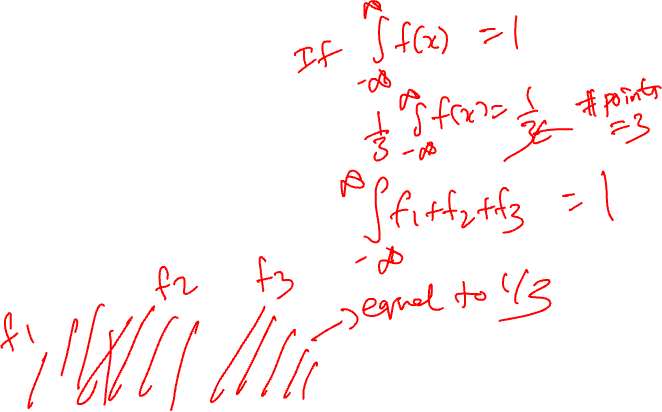 If ∫_{-∞}^{∞} f(x) = 1
1/3 ∫_{-∞}^{∞} f(x) = 1/3 # points = 3
∫_{-∞}^{∞} f1+f2+f3 = 1
f1 f2 f3 → equal to 1/3